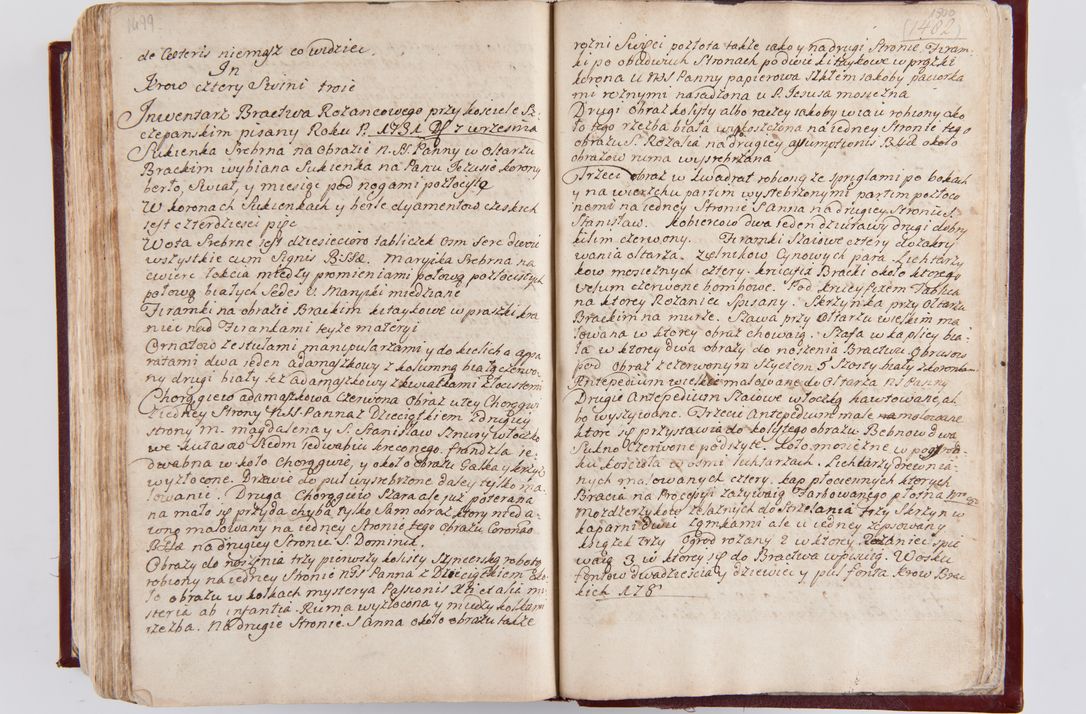 1499
de Caeteris niemasz co widziec.
In
Krow cztery Swini troie
Inwentarz Bractwa Rozancowego przy kosciele Sz-
czepanskim pisany Roku P. 1731 D 7 wrzesnia
Sukienka Srebrna na Obrazie N. SS Panny w Oltarzu
Brackim wybiana Sukienka na Panu Jezusie korony
berło, Swiat, y miesiąc pod nogami pozłocys
W koronach Sukienkach y berle dyamentow czeskich
jest czterdziesci pięc
Wota Srebrne jest dziesiecioro tabliczek Osm Serc dwoie
wszystkie cum Signis BSSæ. Maryika Srebrna na
cwierc łokcia między promieniami połową pozłocistych
połową białych Sedes V. Maryiki miedziane
Firanki na obrazie Brackim kitaykowe w prążki kra
niec nad Firankami teyze materyi
Ornatow ze stułami manipularzami y do kielicha appa
ratami dwa ieden adamaszkowy z kolumną białą czerwo-
ny drugi biały tez adamaszkowy z kwiatkami złocistemi
Chorągwio adamaszkowa Czerwona Obraz u tey Chorągwi
z iedney Strony NSS Panna z Dzieciątkiem z drugiey
strony M. Magdalena y S. Stanisław Sznury włoczko
we kutasow Siedm iedwabiu kręconego. frandzla ie-
dwabna w koło Chorągwie, y około obrazu Gałka y krzyż
wyzłocone. Drzewie do puł wysrebrzone daley tylko ma-
lowanie. Druga Chorągwio Szara ale juz poterana
na mało się przyda chyba tylko Sam obraz ktory nie da-
wno malowany na iedney Stronie tego obrazu Corona
BSSæ na drugiey Stronie S. Dominik.
Obrazy do noszenia trzy pierwszy kosisty Sznycerską robotą
robiony na iedney Stronie NSS Panna z Dzieciątkiem Oko-
ło obrazu w kołkach mysterya Passionis Xti et alia my
steria ab infantia. Ruma wyzłocona y między kołkami
rzezba. Na drugie Stronie S Anna około obrazu także
1500
(1482)
rozni Swięci pozłota także iako y na drugi Stronie. Firan-
ki po obudwuch Stronach po dwie kitaykowe w prążki
korona u NSS Panny papierowa Szkłem iakoby paciorka
mi roznymi nasadzona u P. Jezusa mosięzna
Drugi Obraz kosisty albo raczey iakoby wiaia robiony oko
ło tego rzezba biała wykosztona na iedney Stronie tego
obrazu S. Rozalia na drugiey assumptionis BSSæ około
obrazow ruma wysrebrzana
Trzeci obraz w kwadrat robiony ze spręglami po bokach
y na wierzchu partim wysrebrzonymi partim pozłoco
nemi na iedney Stronie S Anna na drugiey Stronie S.
Stanisław. Kobiercow dwa ieden dziurawy drugi dobry
kilim czerwony. Firanki Szaiowe cztery do zakry
wania ołtarza. zelnikow Cynowych para Lichtarzy
kow mosięznych cztery. krucyfix Bracki około ktorego
velum czerwone bombowe. Pod krucyfixem Tablica
na ktorey Rozaniec Spisany. Skrzynka przy Ołtarzu
Brackim na murze. Szawa przy Ołtarzu wielkim ma
lowana w ktorey obraz chowaią. Szafa w kaplicy bia-
ła w ktorey dwa obrazy do noszenia Bractwa Obrusow
pod Obraz z czerwonym Szyciem 5 Szosty biały z koronkami
Antepedium wielkie malowane do Ołtarza NS Panny
Drugie Antepedium Szaiowe włoczką hawtowane, ał
bo wyszywane. Trzecie Antepedium małe malowane
ktore się przystawia do kosistego obrazu Bębnow dwa
Sukno Czerwone podszyte. Koło mosięzne w pośrod-
ku kościoła w osmi lichtarzach. Lichtarzy drewnia-
nych malowanych cztery. kap płociennych ktorych
Bracia na Processyi zazywaią Farbowanego płotna
mozdzerzykow zelaznych do strzelania trzy Skrzyn w
kaparni dwie z zamkami ale u iedney zepsowany
książek trzy Ogrod rozany 2 w ktorey Rozaniec spie
waią 3 w ktorey się do Bractwa wpisuią. Wosku
fontow dwadziescia y dziewięc y puł fonta krow Brac
kich 178